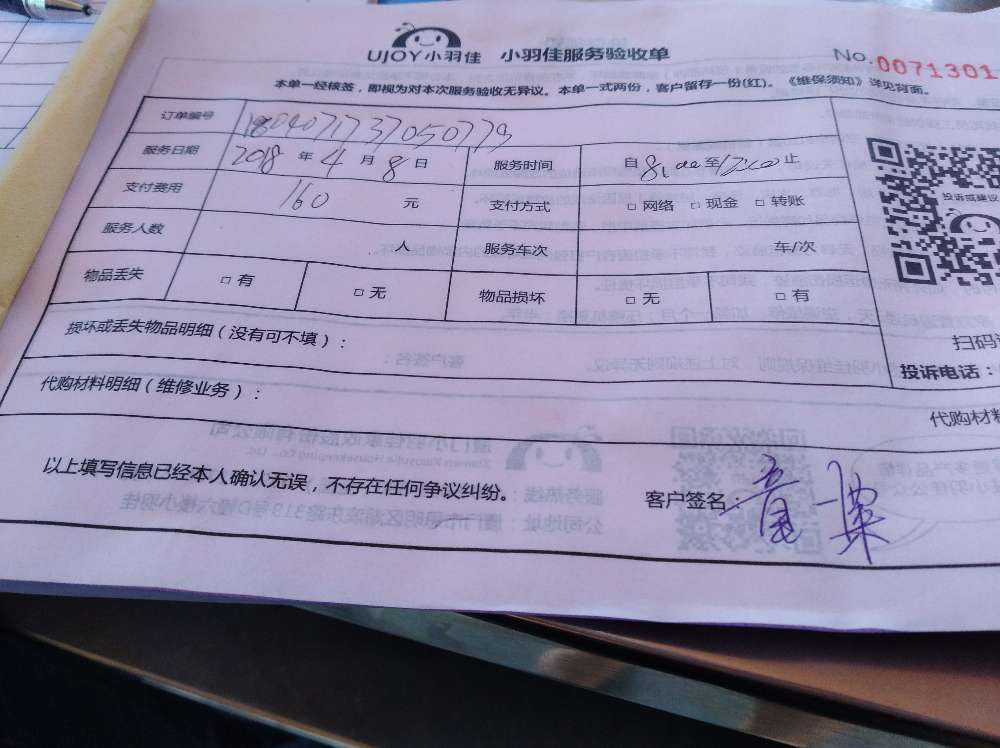 UJOY小羽佳 小羽佳服务验收单
No.0071301
本单一经核签，即视为对本次服务验收无异议。本单一式两份，客户留存一份(红)。《维保须知》详见背面。
订单编号 1804071737050779
服务日期 2018 年 4 月 8 日 服务时间 自 8:00 至 12:00 止
支付费用 160 元 支付方式 □ 网络 □ 现金 □ 转账
服务人数 人 服务车次 车/次
物品丢失 □ 有 □ 无 物品损坏 □ 无 □ 有
投诉或建议
损坏或丢失物品明细（没有可不填）：
扫码
投诉电话：
代购材料明细（维修业务）：
代购材料
以上填写信息已经本人确认无误，不存在任何争议纠纷。
客户签名：